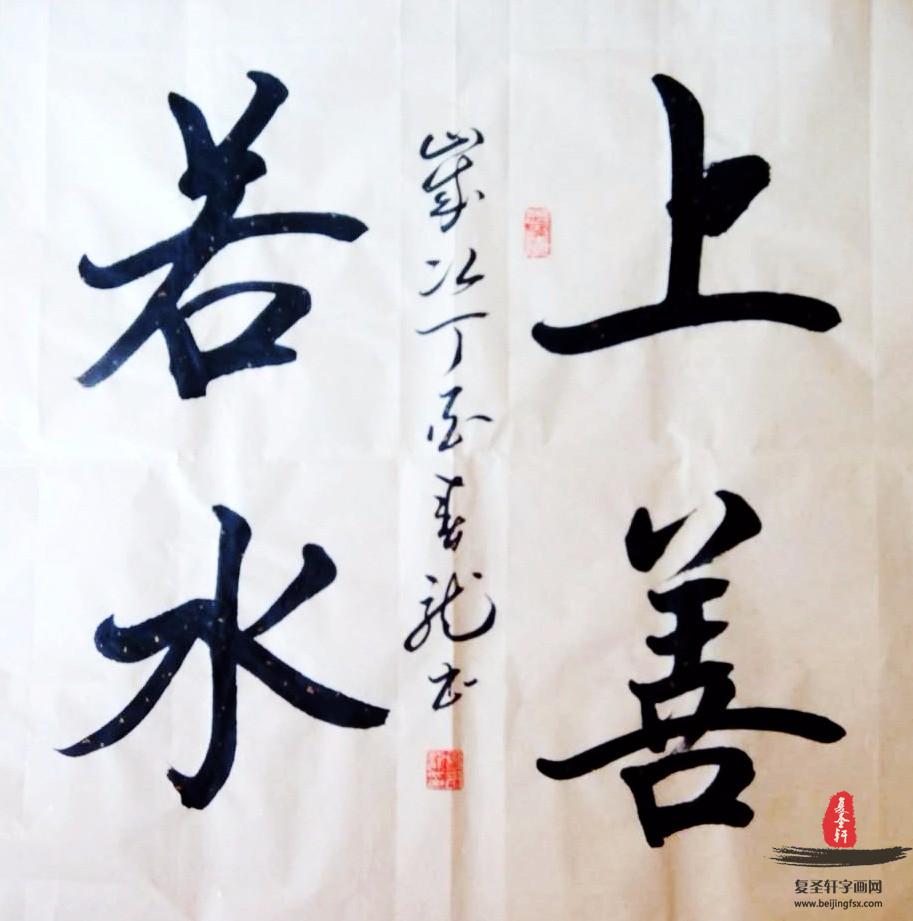 上善
若水
歲次丁酉春龍书
复圣轩
复圣轩字画网
www.beijingfsx.com